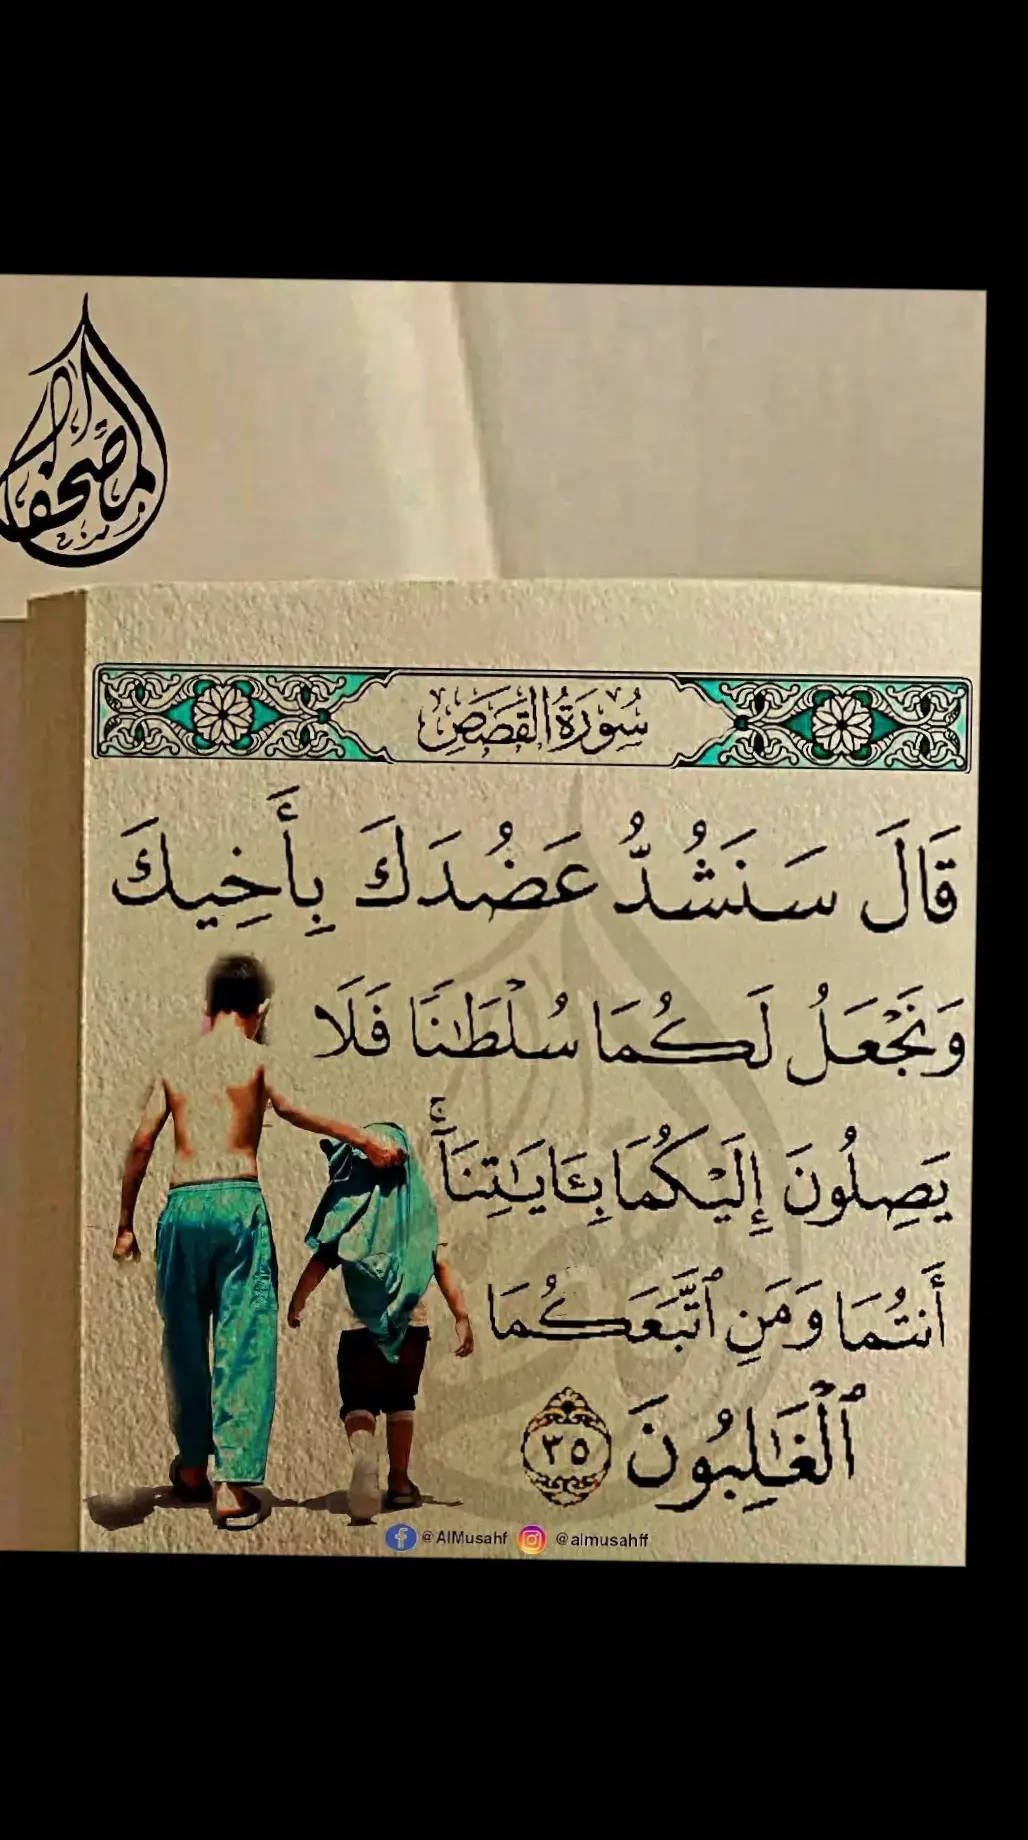 المصحف
سُورَةُ القَصَصِ
قَالَ سَنَشُدُّ عَضُدَكَ بِأَخِيكَ
وَنَجْعَلُ لَكُمَا سُلْطَٰنًا فَلَا
يَصِلُونَ إِلَيْكُمَا بِـَٔايَٰتِنَآۚ
أَنتُمَا وَمَنِ ٱتَّبَعَكُمَا
ٱلْغَٰلِبُونَ ٣٥
@AlMusahf @almusahff